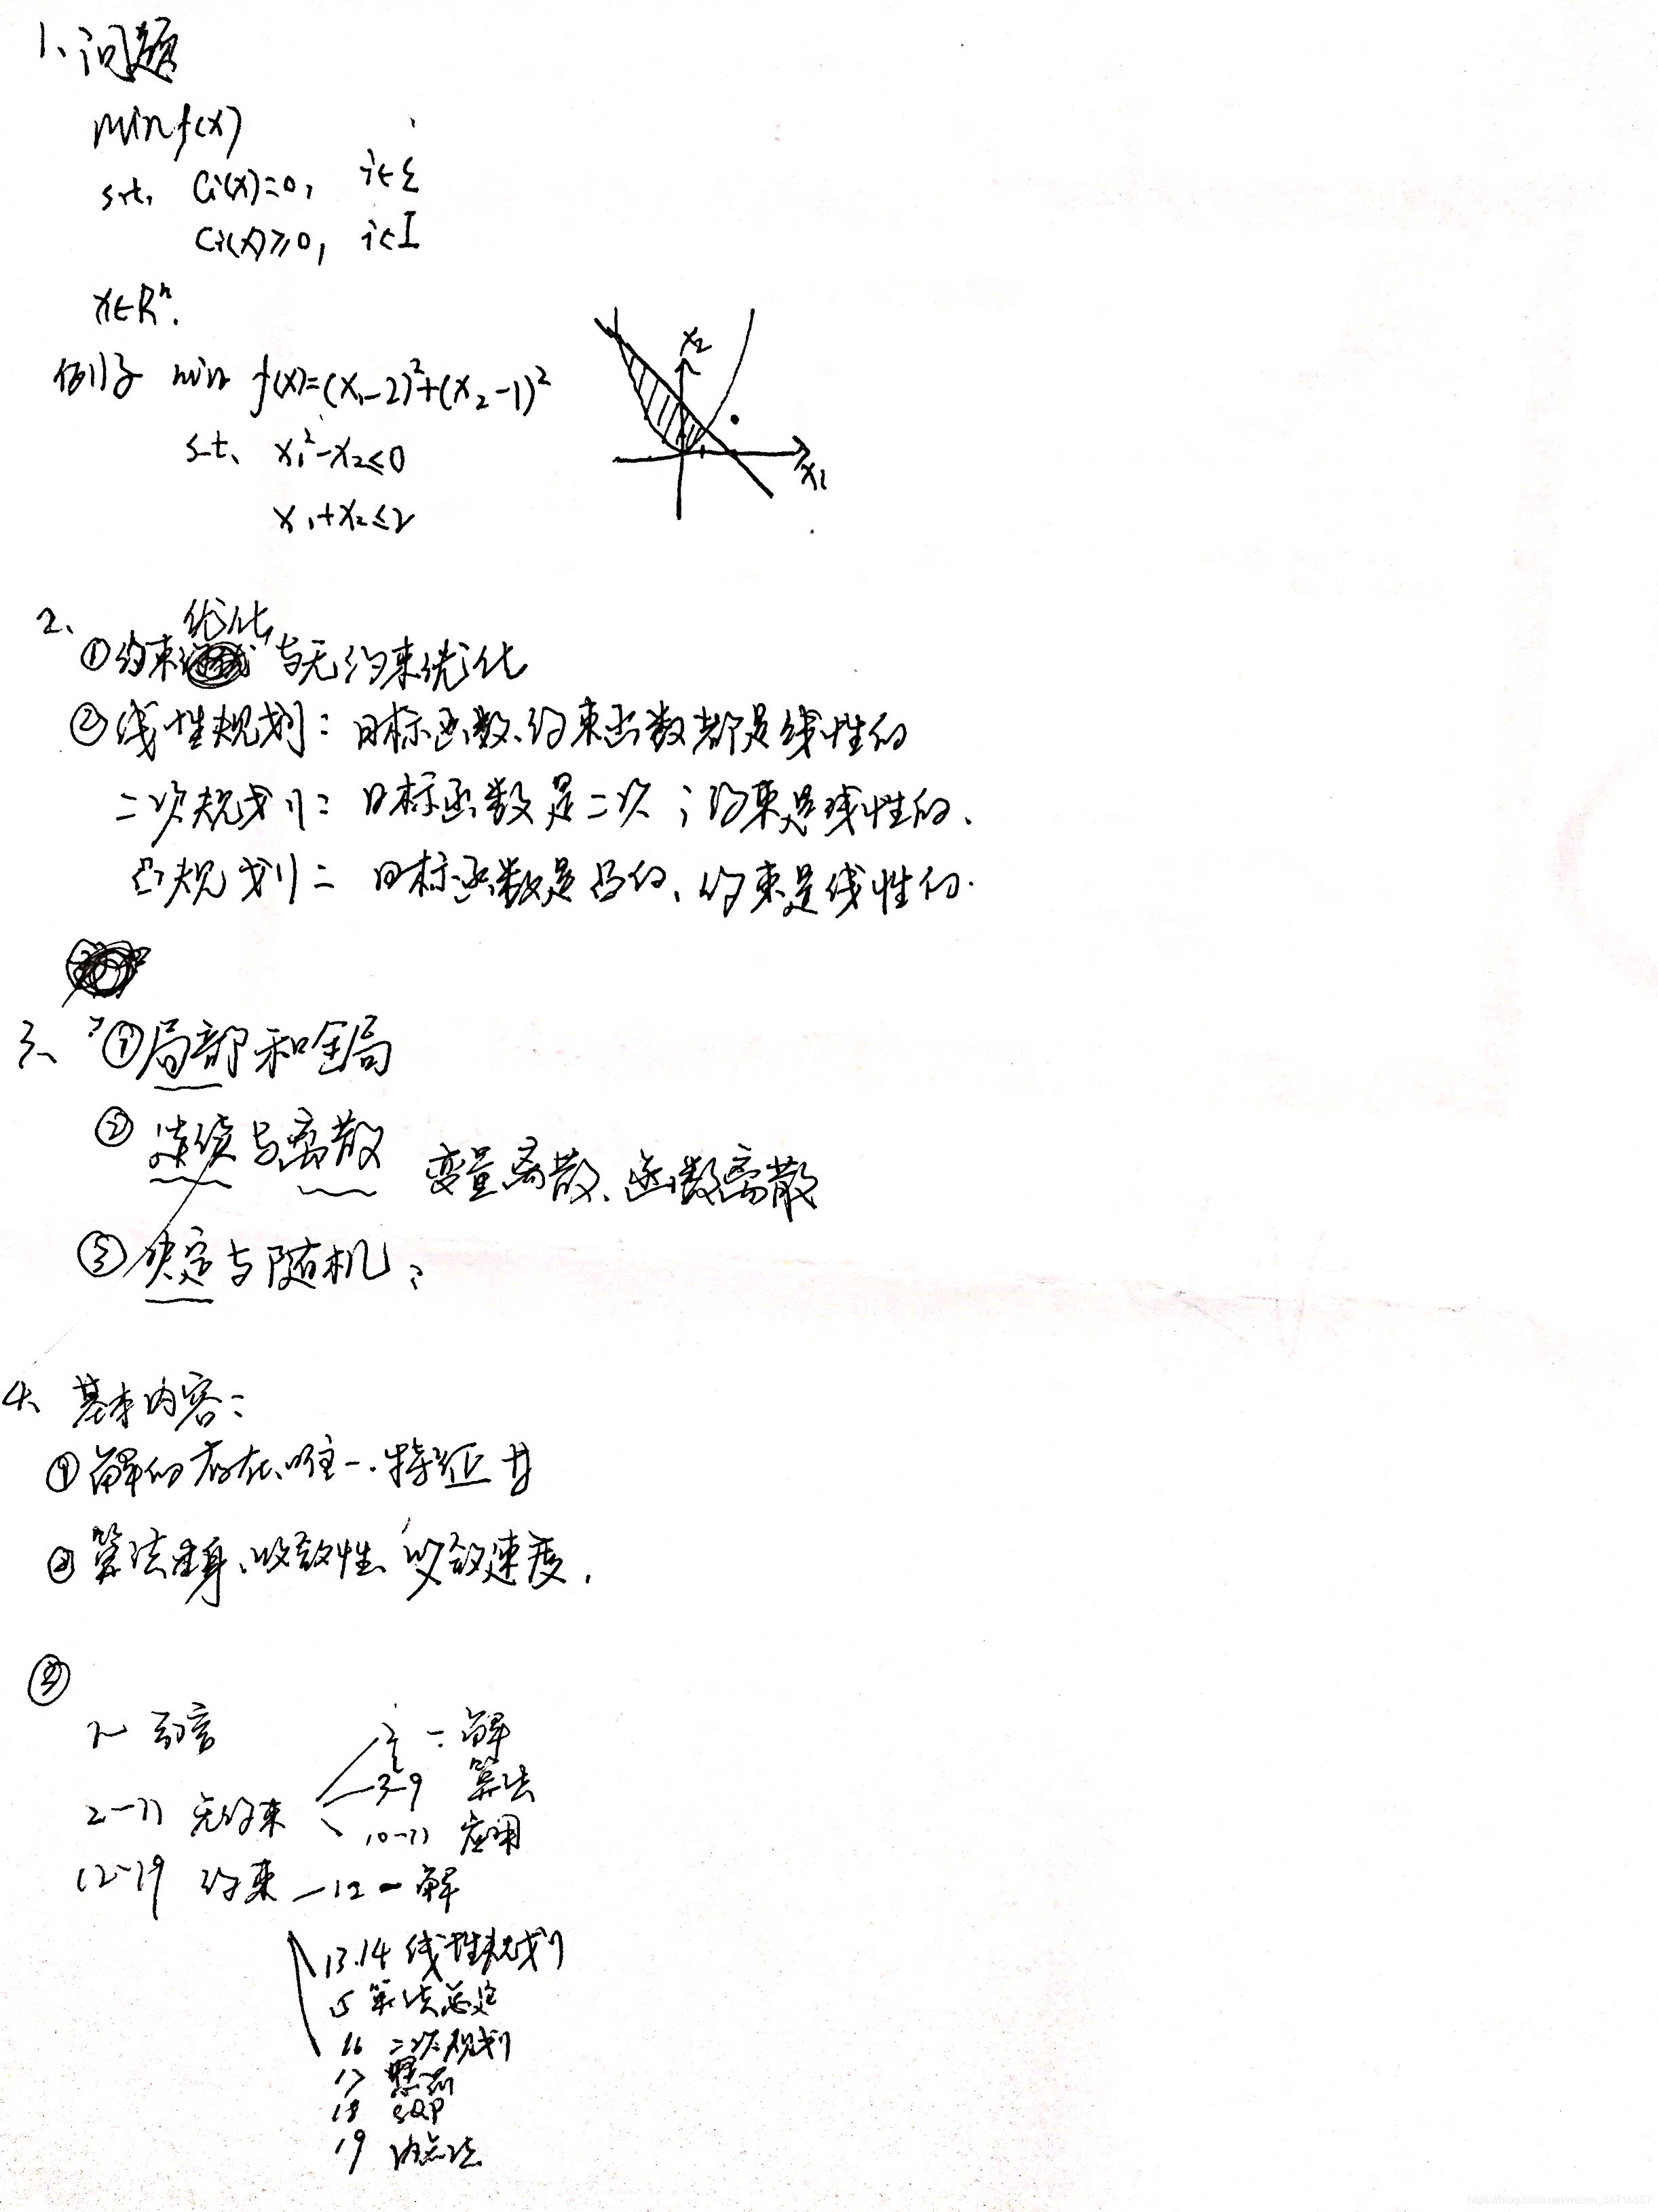 1、问题
min f(x)
s.t. Ci(x)=0, i∈ξ
Ci(x)≥0, i∈I
x∈Rⁿ.
例子 min f(x)=(x₁-2)²+(x₂-1)²
s.t. x₁²-x₂≤0
x₁+x₂≤2
x₂
x₁
2、
优化
①约束 与无约束优化
②线性规划: 目标函数、约束函数都是线性的
二次规划: 目标函数是二次;约束是线性的、
凸规划: 目标函数是凸的、约束是线性的.
3、①局部和全局
②连续与离散 变量离散、函数离散
③决定与随机;
4、基本内容:
①解的存在、唯一、特征
②算法本身、收敛性、收敛速度.
③
1~ 引言
2-11 无约束
2 - 解
3-9 算法
10-11 应用
12-19 约束 - 12 - 解
13.14 线性规划
15 算法
16 二次规划
17
18 SQP
19 内点法
https://blog.csdn.net/weixin_38716567